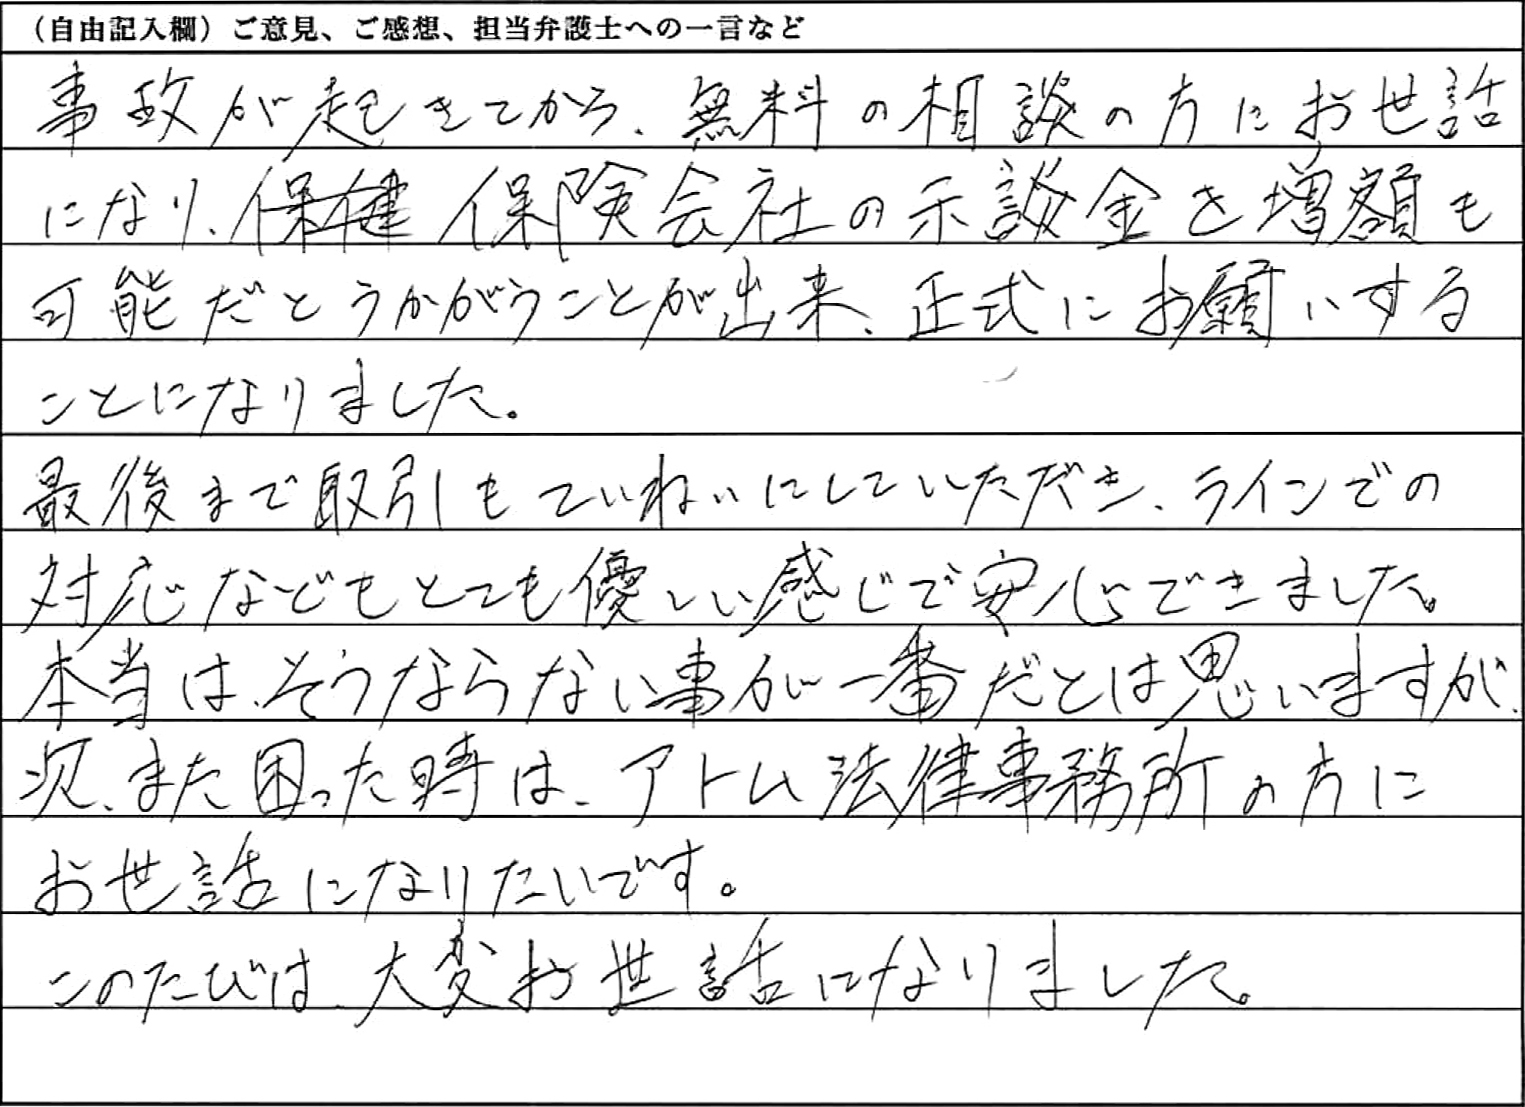 （自由記入欄）ご意見、ご感想、担当弁護士への一言など
事故が起きてから、無料の相談の方にお世話
になり、保険会社の示談金を増額も
可能だとうかがうことが出来、正式にお願いする
ことになりました。
最後まで取引もていねいにしていただき、ラインでの
対応などもとても優しい感じで安心できました。
本当は、そうならない事が一番だとは思いますが、
次、また困った時は、アトム法律事務所の方に
お世話になりたいです。
このたびは、大変お世話になりました。